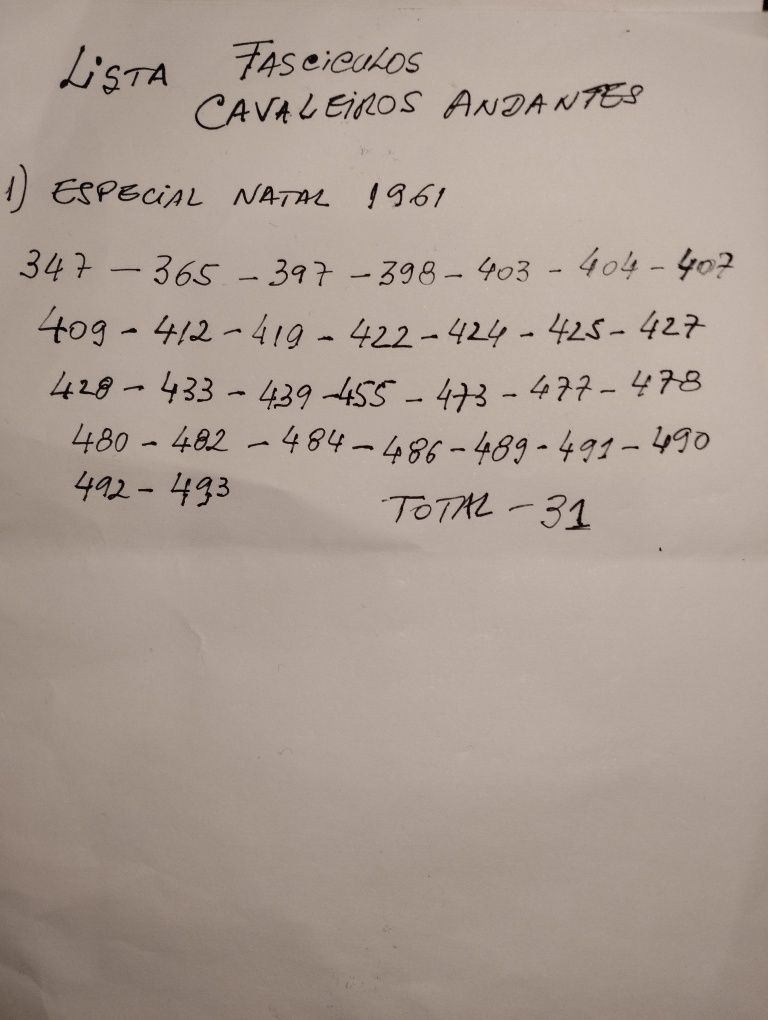 LISTA FASCICULOS
CAVALEIROS ANDANTES
1) ESPECIAL NATAL 1961
347 - 365 - 397 - 398 - 403 - 404 - 407
409 - 412 - 419 - 422 - 424 - 425 - 427
428 - 433 - 439 - 455 - 473 - 477 - 478
480 - 482 - 484 - 486 - 489 - 491 - 490
492 - 493
TOTAL - 31